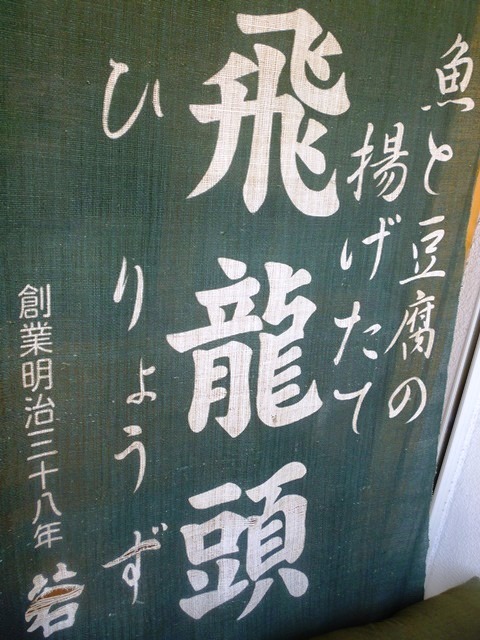 魚と豆腐の
揚げたて
飛龍頭
ひりょうず
創業明治三十八年